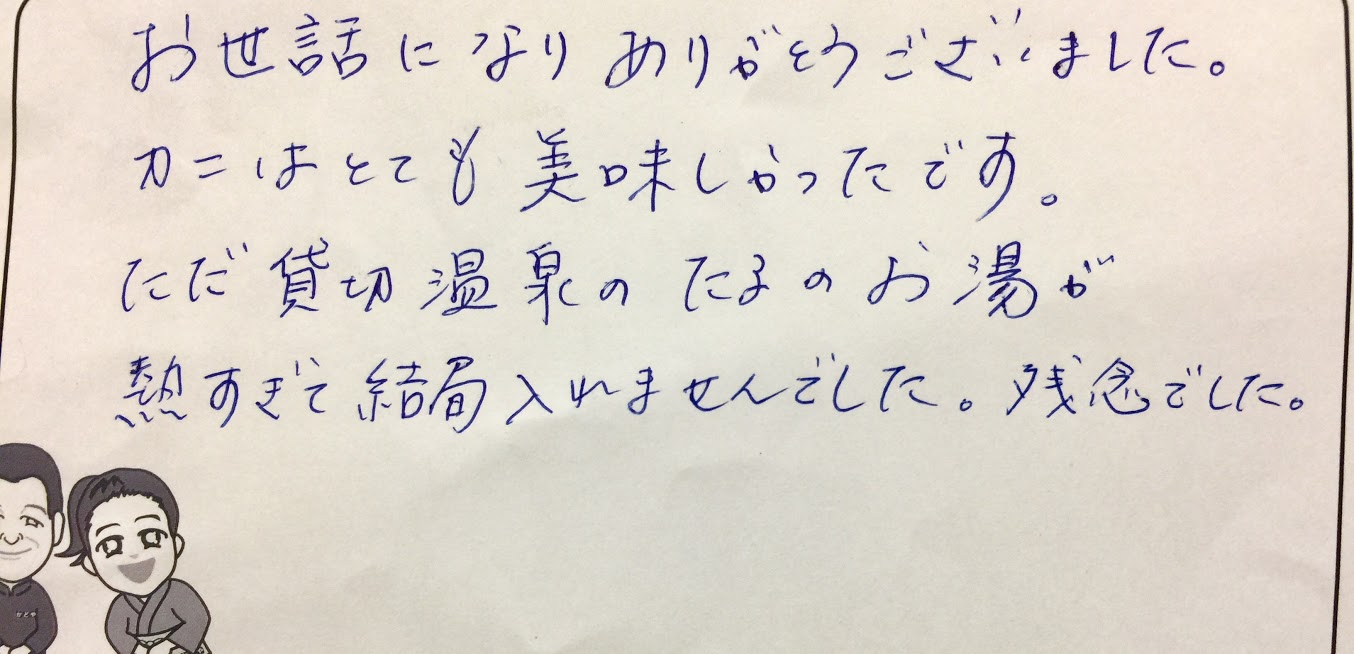 お世話になりありがとうございました。
カニはとても美味しかったです。
ただ貸切温泉のたるのお湯が
熱すぎて結局入れませんでした。残念でした。
かどや